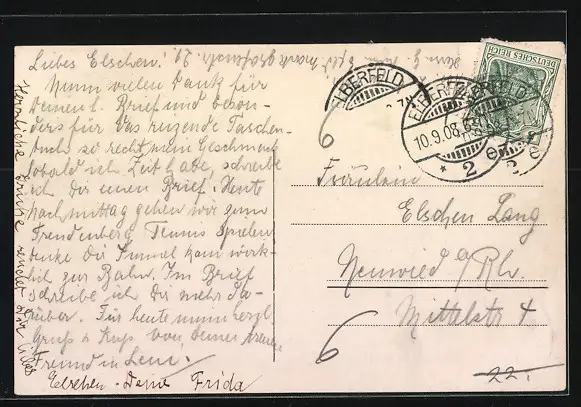 Liebes Elschen!
Nimm vielen Dank für
Deinen l. Brief und beson-
ders für das reizende Taschen-
tuch so recht mein Geschmack
sobald ich Zeit habe, schreibe
ich Dir einen Brief. Heute
nachmittag gehen wir zum
Freudenberg Tennis spielen
denke Dir Immel kam wirk-
lich zur Bahn. Im Brief
schreibe ich Dir mehr da-
rüber. Für heute nimm herzl
Gruß u Kuß von Deiner treuen
Freundin Leni.
Elschen - Deine Frida
Herzliche Grüße sendet Dir
ELBERFELD
ELBERFELD
10.9.08
* 2 e
DEUTSCHES REICH
6
Fräulein
Elschen Lang
Neuwied a/Rh.
Mittelstr 4
6
22.